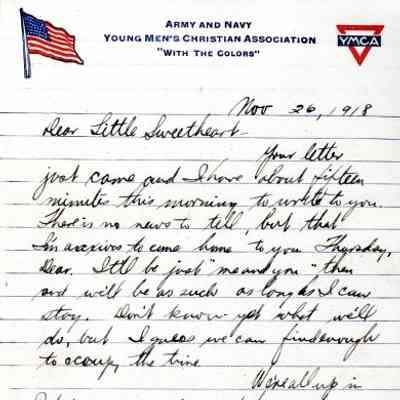 ARMY AND NAVY
YOUNG MEN'S CHRISTIAN ASSOCIATION
"WITH THE COLORS"
YMCA
Nov 26, 1918
Dear Little Sweetheart-
Your letter
just came and I have about fifteen
minutes this morning to write to you.
There is no news to tell, but that
I'm anxious to come home to you Thursday,
Dear. It'll be just "me and you" then
and will be as such as long as I can
stay. Don't know yet what we'll
do, but I guess we can find enough
to occupy the time
We're all up in